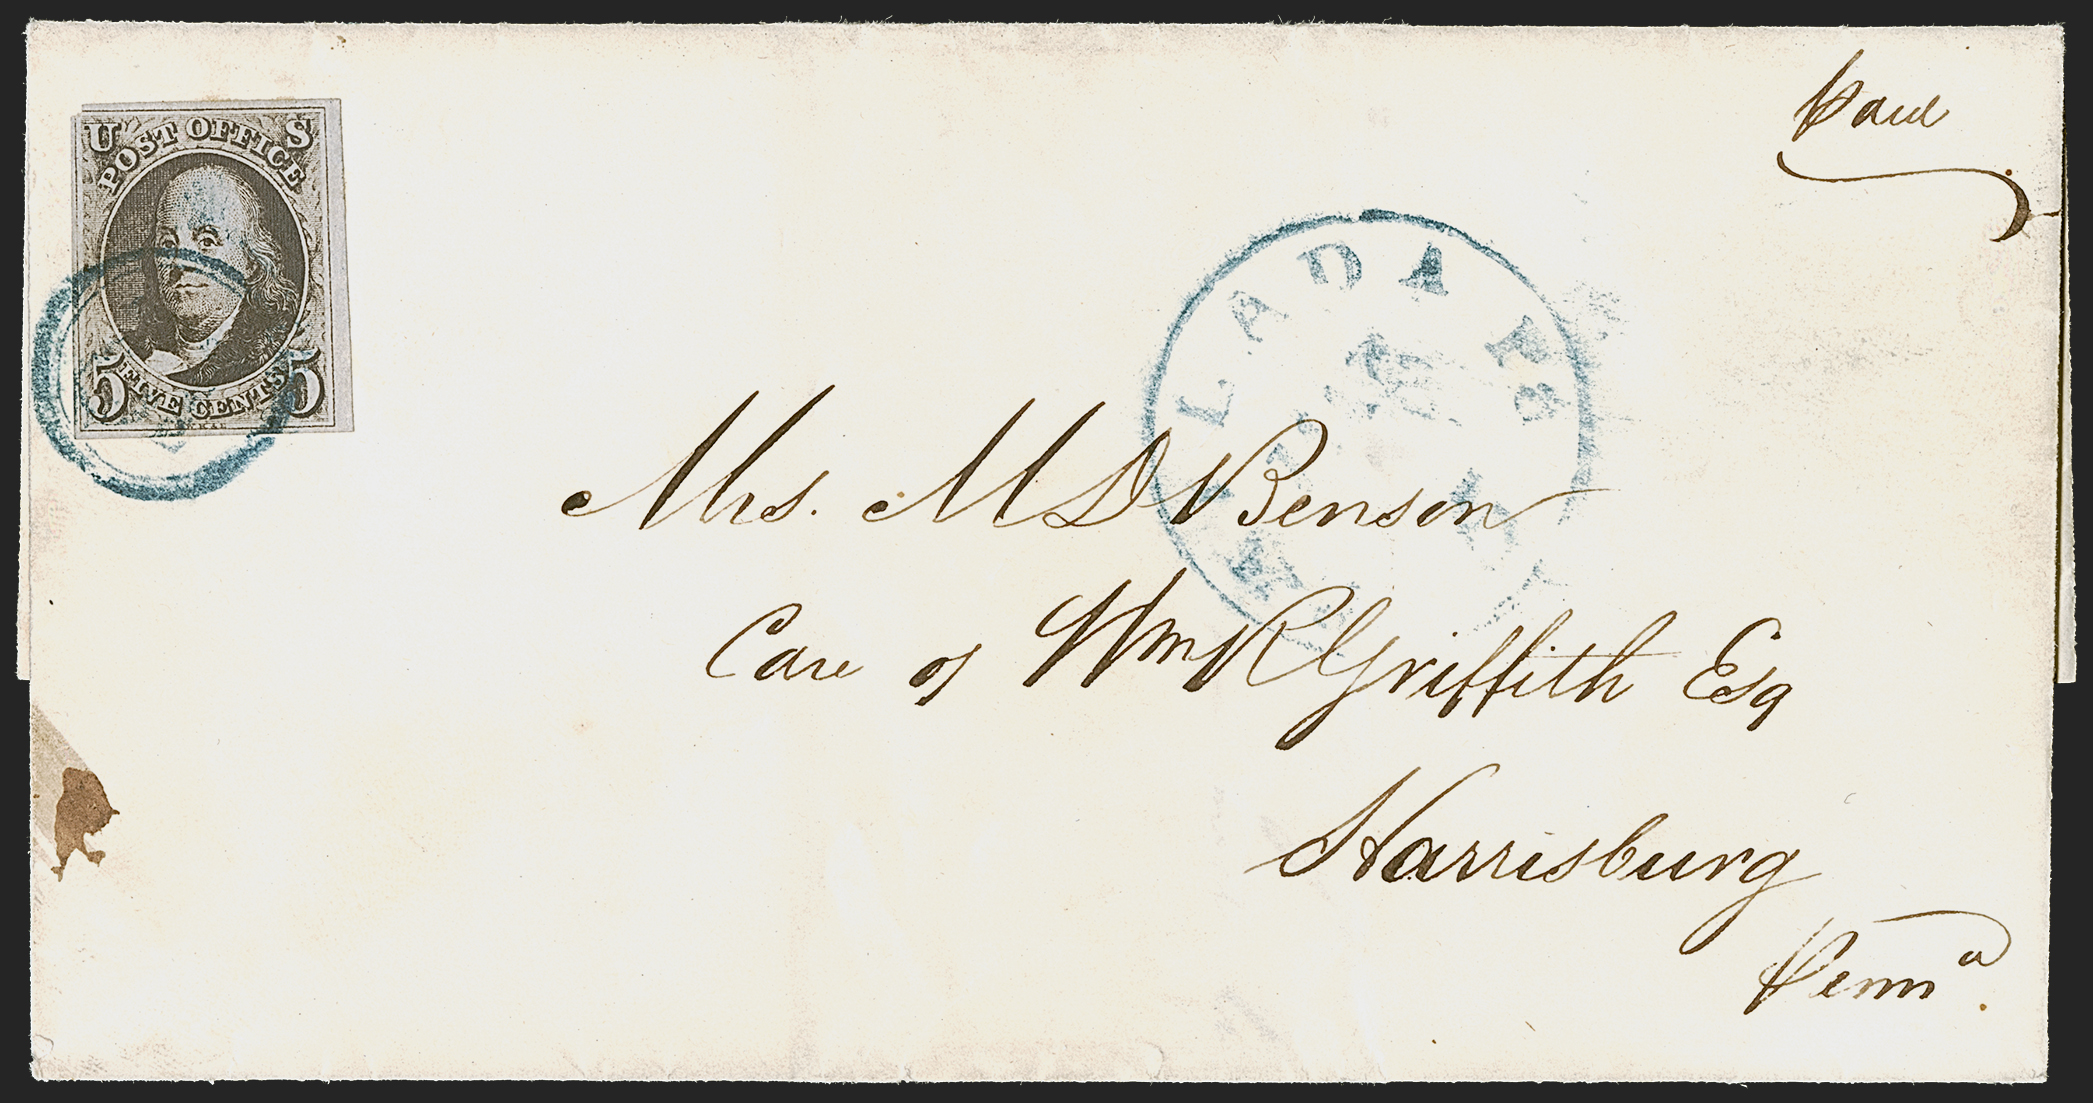 Paid
U S
POST OFFICE
5 FIVE CENTS 5
Mrs. M D Benson
Care of Wm R Griffith Esq
Harrisburg
Penna